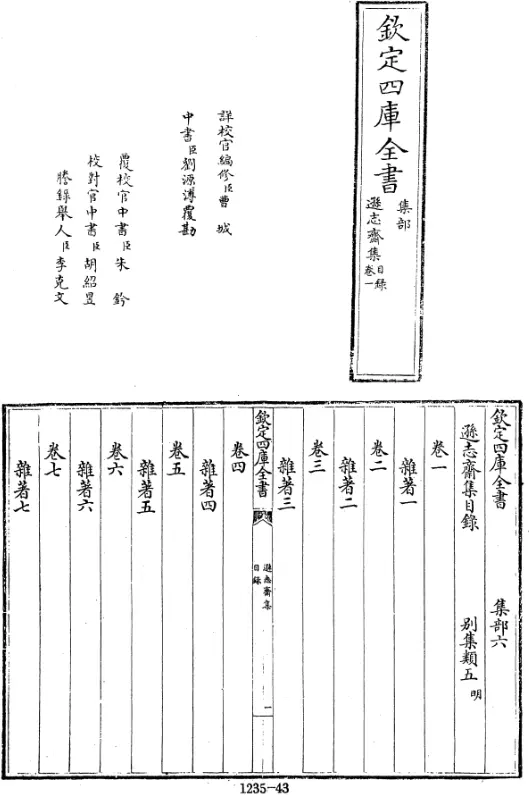 欽定四庫全書
集部
遜志齋集
目録
卷一
詳校官編修臣曹城
中書臣劉源溥覆勘
覆校官中書臣朱鈐
校對官中書臣胡紹昱
謄錄舉人臣李克文
欽定四庫全書 集部六
遜志齋集目錄 別集類五 明
卷一
雜著一
卷二
雜著二
卷三
雜著三
欽定四庫全書
遜志齋集
目錄
一
卷四
雜著四
卷五
雜著五
卷六
雜著六
卷七
雜著七
1235-43